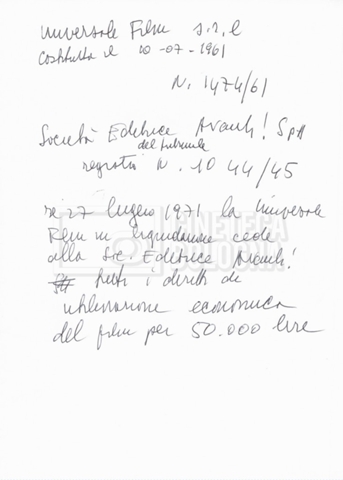 Universale Film s.r.l
Costituita il 10-07-1961
N. 1474/61
Società Editrice Avanti! SpA
del tribunale
registro N. 1044/45
27 luglio 1971 la Universale
Film in liquidazione cede
alla Soc. Editrice Avanti!
tutti i diritti di
utilizzazione economica
del film per 50.000 lire
CINETECA
BOLOGNA